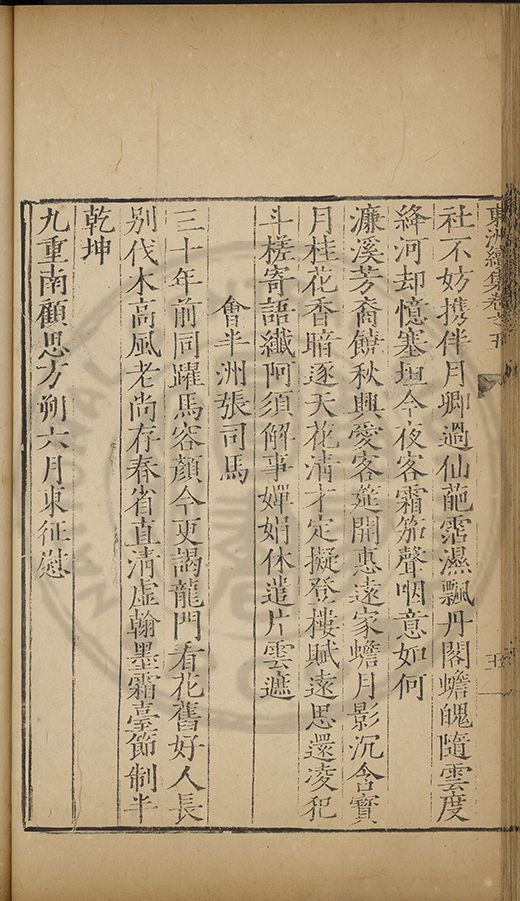 東洲續集卷之五
五
社不妨携伴月卿過仙葩露濕飄丹閣蟾魄隨雲度
絳河却憶塞垣今夜客霜笳聲咽意如何
濂溪芳裔饒秋興愛客筵開惠遠家蟾月影沉含寶
月桂花香暗逐天花清才定擬登樓賦遠思還凌犯
斗槎寄語纖阿須解事嬋娟休遣片雲遮
會半洲張司馬
三十年前同躍馬容顏今更謁龍門看花舊好人長
别伐木高風老尚存春省直清虛翰墨霜臺節制半
乾坤
九重南顧思方朔六月東征慰